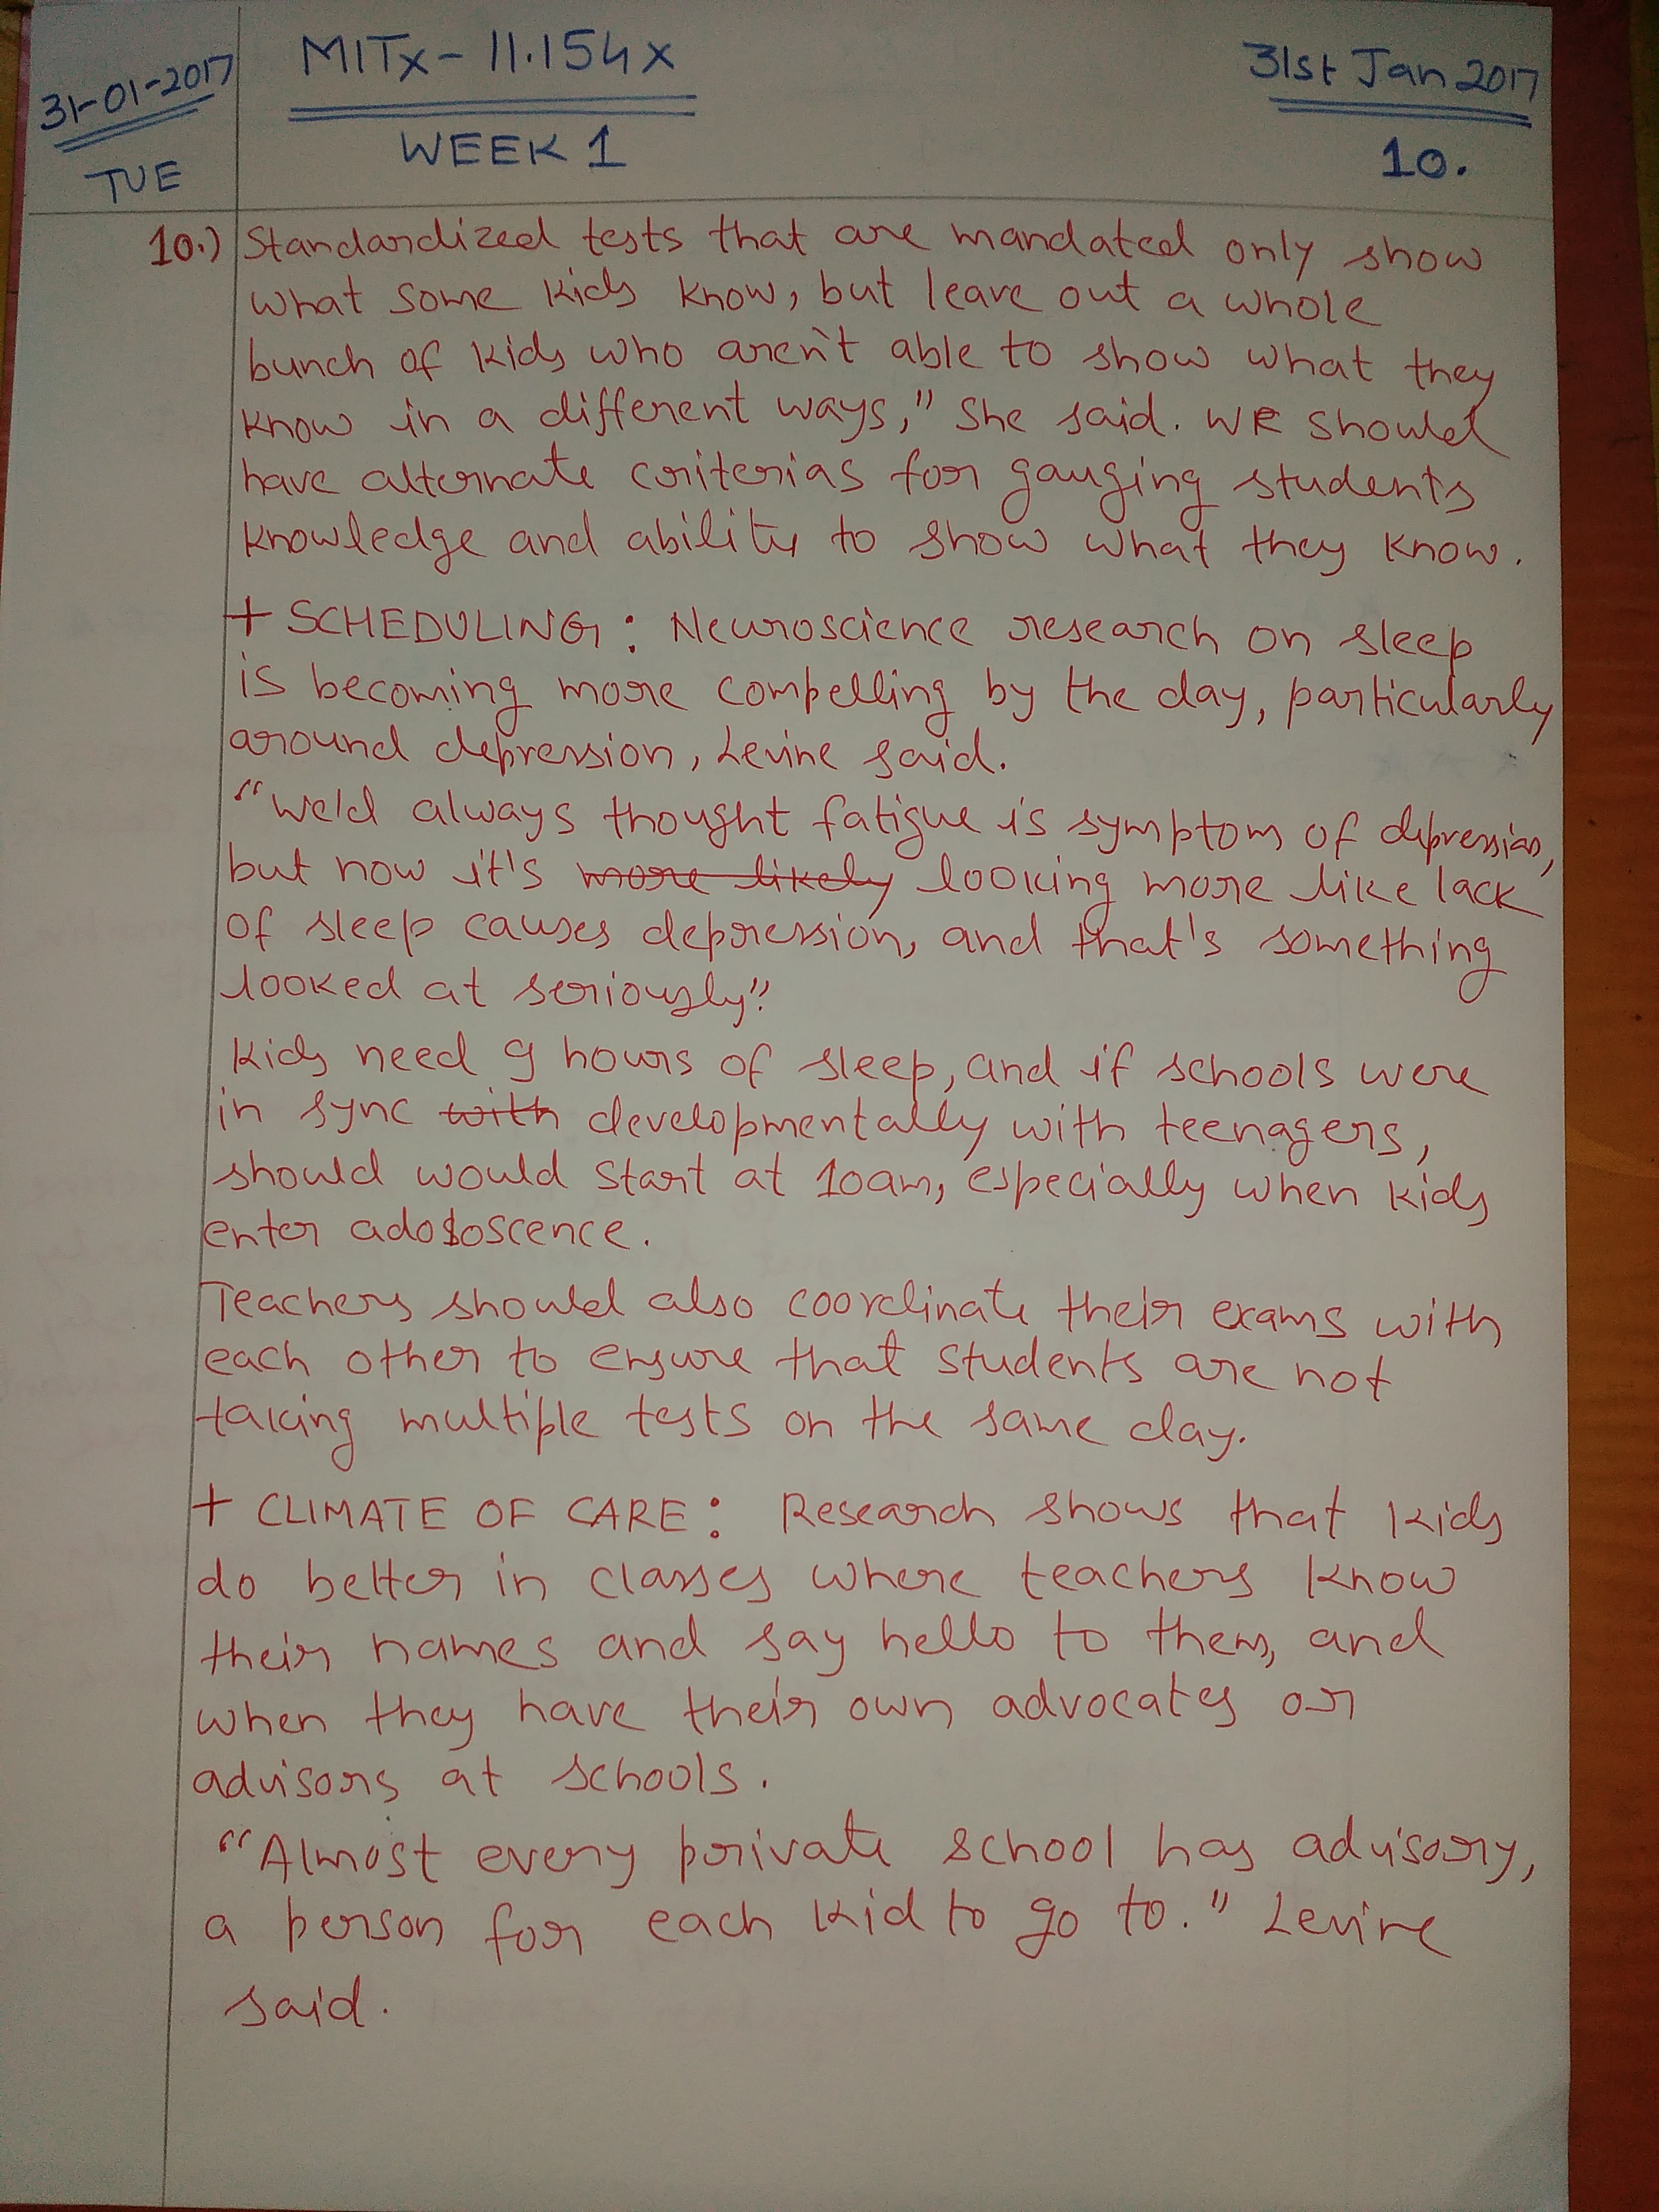 31-01-2017
TUE
MITx - 11.154x
WEEK 1
31st Jan 2017
10.
10.) Standardized tests that are mandated only show
what some kids know, but leave out a whole
bunch of kids who aren't able to show what they
know in a different ways," She said. WE should
have alternate criterias for gauging students
knowledge and ability to show what they know.
+ SCHEDULING: Neuroscience research on sleep
is becoming more compelling by the day, particularly
around depression, Levine said.
"We'd always thought fatigue is symptom of depression,
but now it's more likely looking more like lack
of sleep causes depression, and that's something
looked at seriously."
Kids need 9 hours of sleep, and if schools were
in sync with developmentally with teenagers,
should would start at 10am, especially when kids
enter adoloscence.
Teachers should also coordinate their exams with
each other to ensure that students are not
taking multiple tests on the same day.
+ CLIMATE OF CARE: Research shows that kids
do better in classes where teachers know
their names and say hello to them, and
when they have their own advocates or
advisors at schools.
"Almost every private school has advisory,
a person for each kid to go to." Levine
said.